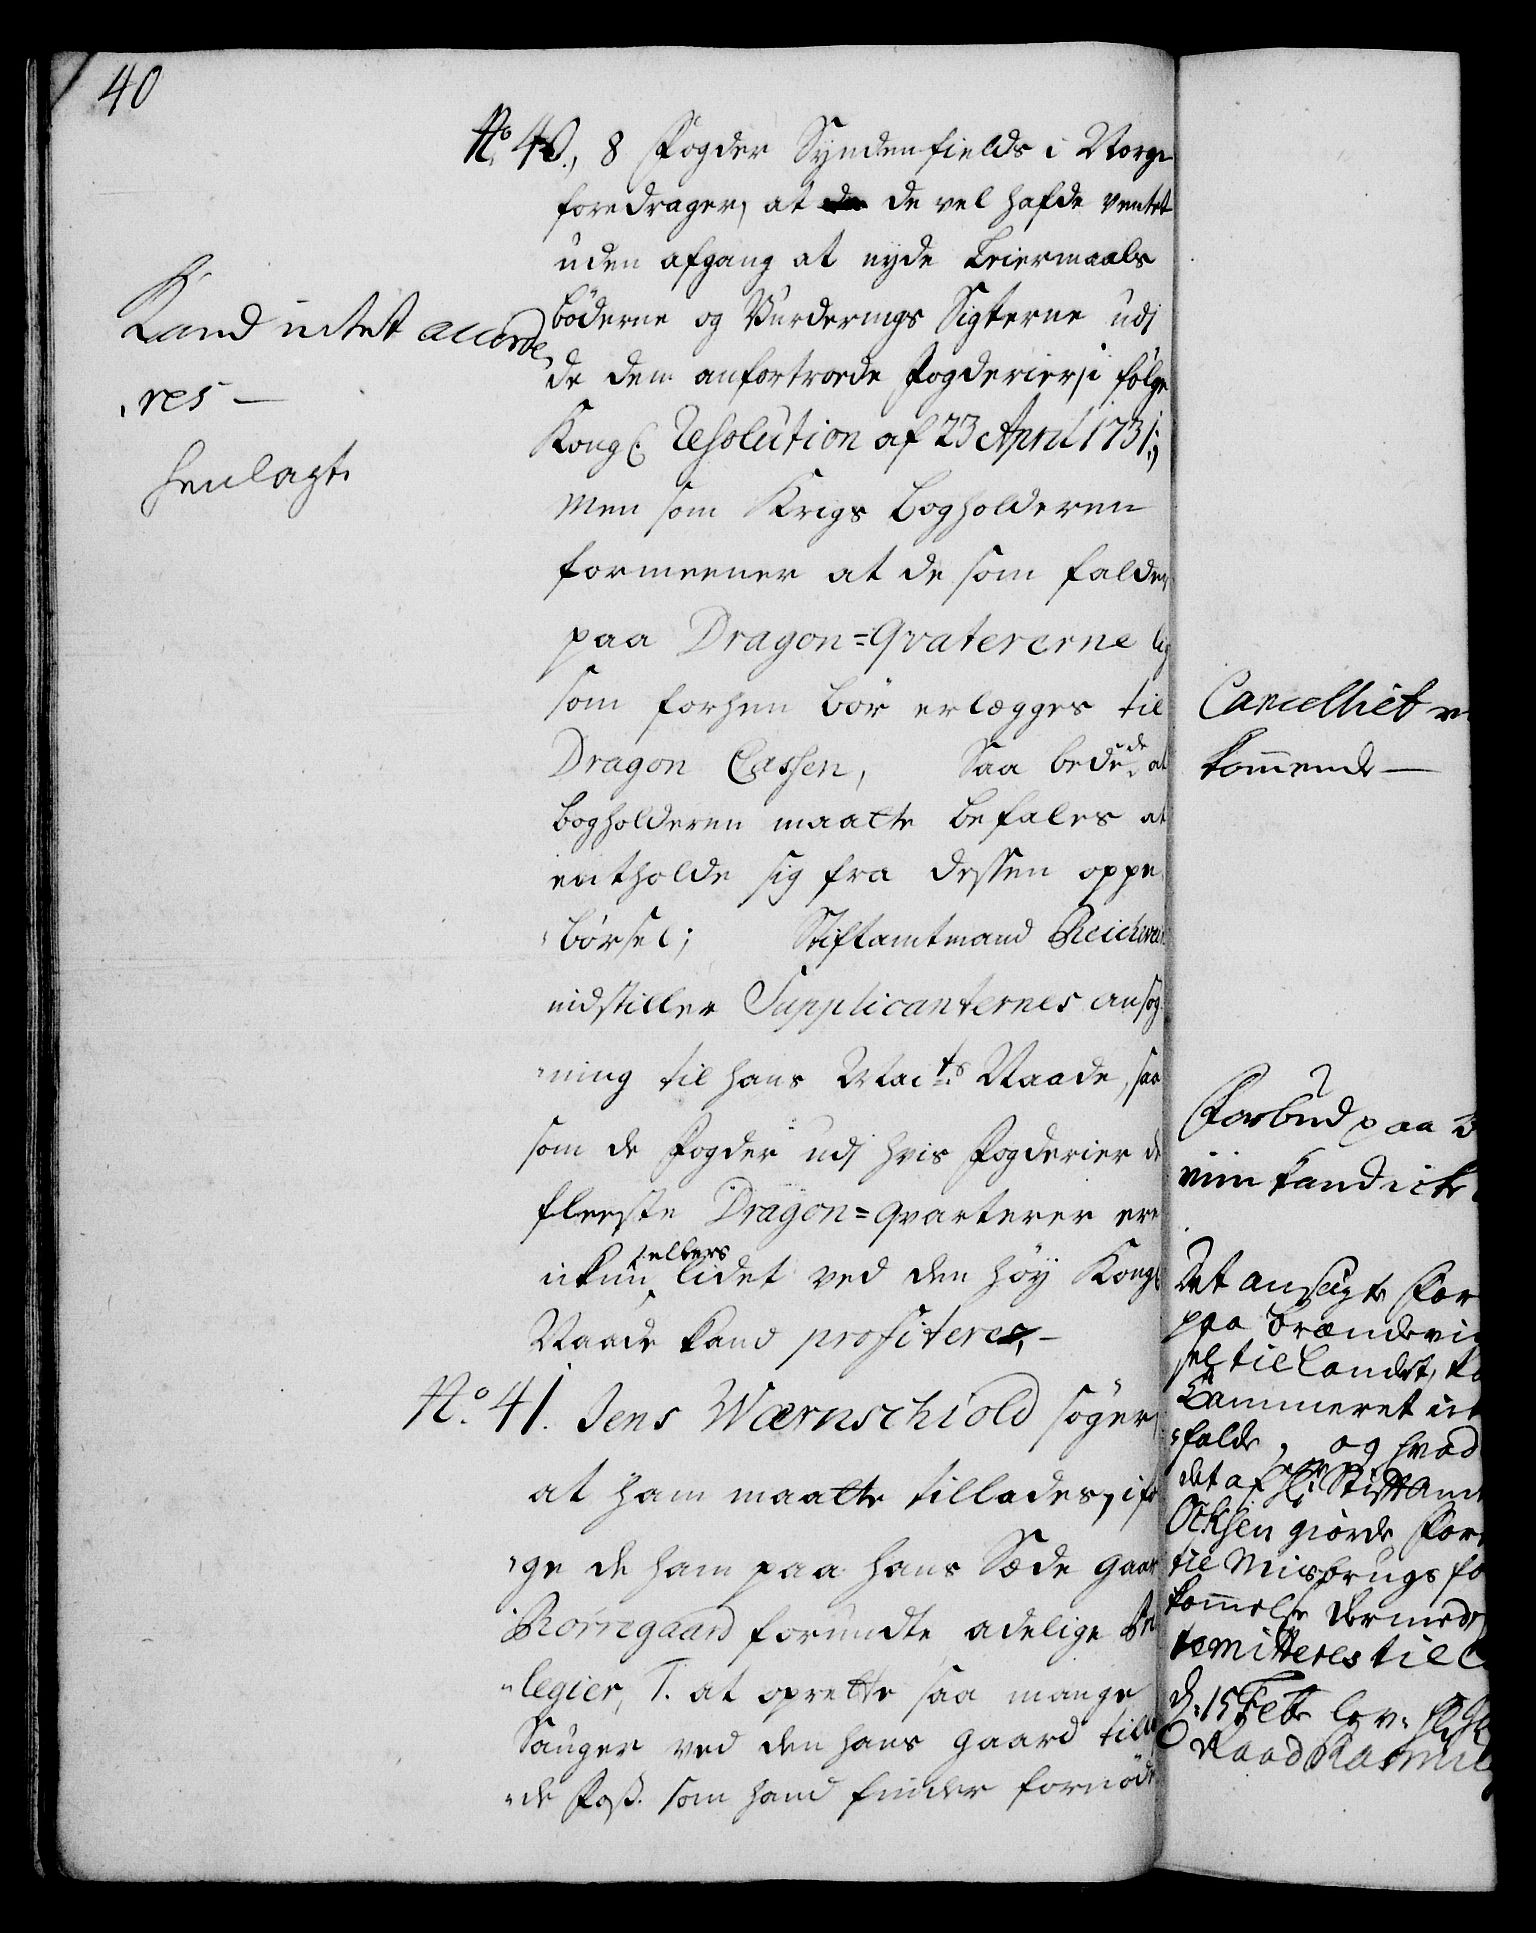 40
No 40., 8 Fogder Syndenfields i Norge
foredrager, at de vel hafde ventet
uden afgang at nyde Leiermaals
bøderne og Vurderings Sigterne udj
de dem anfortroede Fogderier, i følge
Kongl: Resolution af 23 April 1731;,
Men som Krigs Bogholderen
formeener at de som falder
paa Dragon=Qvatererne lig
som forhen bør erlægges til
Dragon Cassen, Saa bede de at
bogholderen maatte befales at
entholde sig fra dessen oppe
børsel; Stiftamtmand
indstiller Supplicanternes ansøg
ning til hans Maits Naade, saa
som de Fogder udj hvis Fogderier de
fleeste Dragon=qvarterer ere
ickun ellers lidet ved den høy Kongl
Naade kand profitere,-
Kand intet accorde
res -
henlagt
No. 41. Jens Wærnschiold søger,
at ham maatte tillades, ifø
ge de ham paa hans Sæde gaar
forundte adelige Pri
legier, 1. at oprette saa mange
Sauger ved den hans gaard
de Foss. som hand finder fornød
Cancelliet v
kommende —
Forbud paa
viin kand icke
Det ansøgte For
paa Brændevi
sel til Landet, ka
Cammeret
falde, og hvad
det af Hr Stiftamt
giorde For
til Misbrugs fo
kommelse dermed
remitteres til C
d. 15 Febr